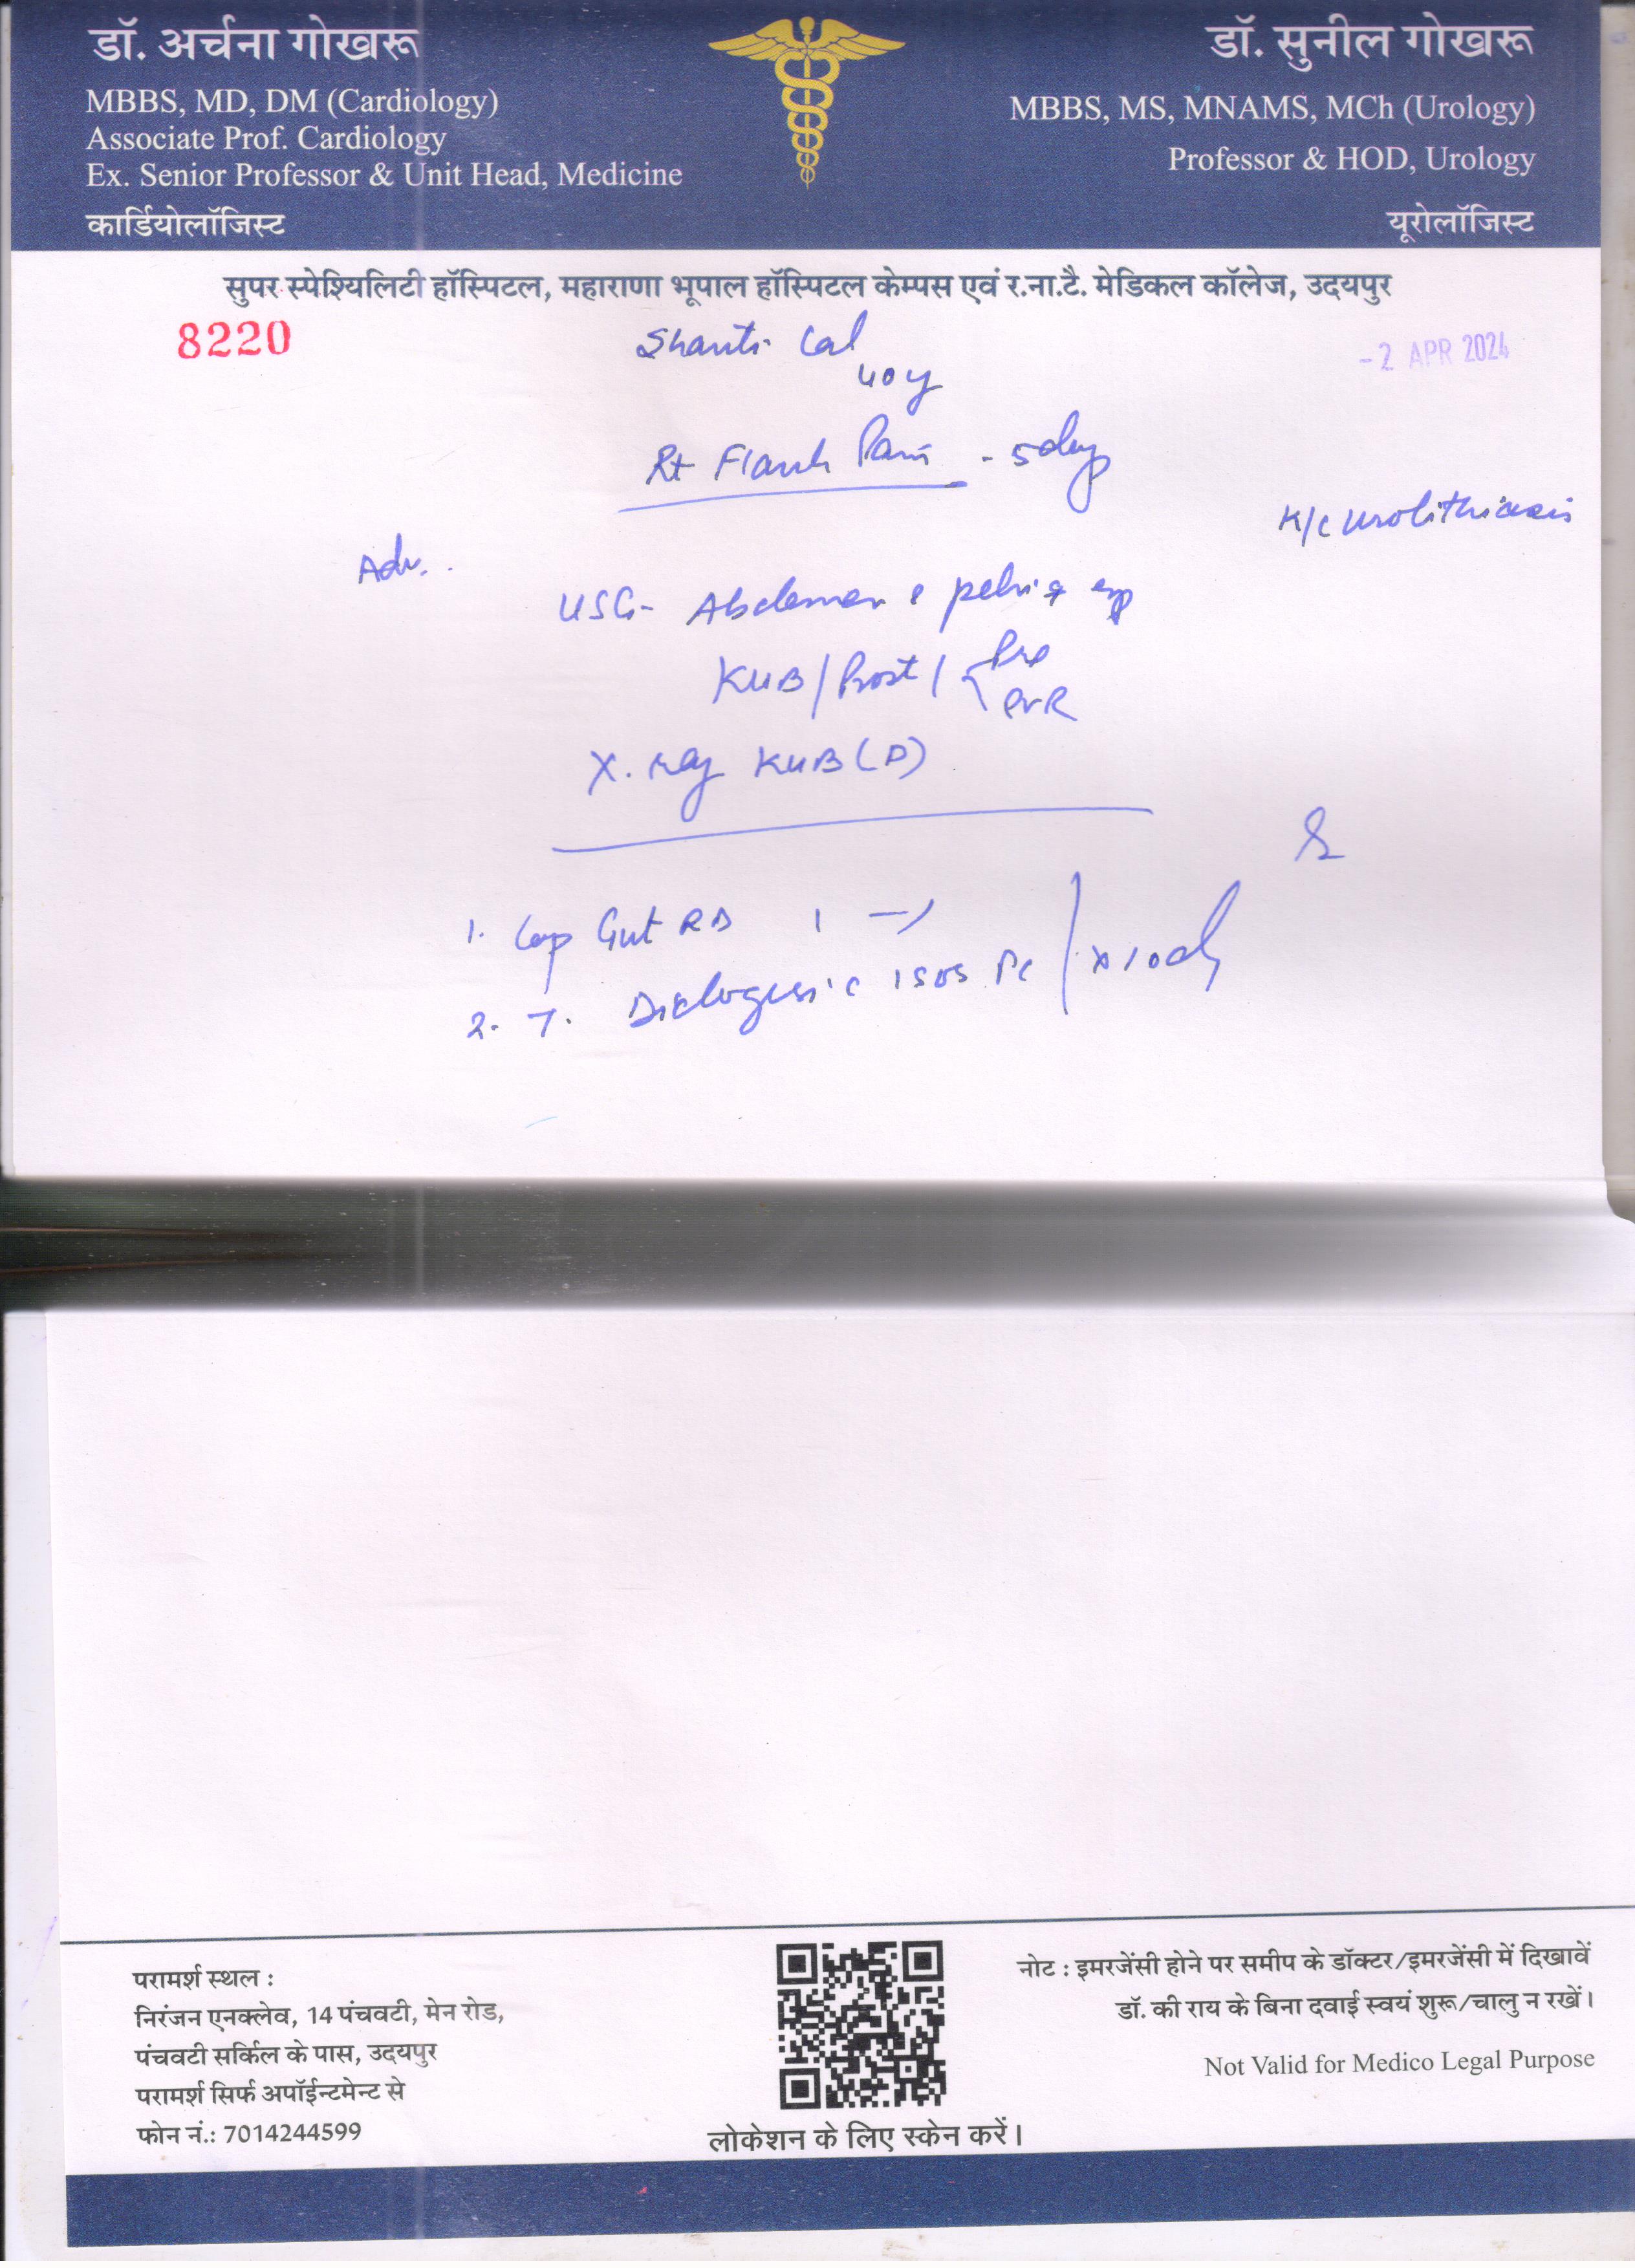 डॉ. अर्चना गोखरू
MBBS, MD, DM (Cardiology)
Associate Prof. Cardiology
Ex. Senior Professor & Unit Head, Medicine
कार्डियोलॉजिस्ट
डॉ. सुनील गोखरू
MBBS, MS, MNAMS, MCh (Urology)
Professor & HOD, Urology
यूरोलॉजिस्ट
सुपर स्पेश्यिलिटी हॉस्पिटल, महाराणा भूपाल हॉस्पिटल केम्पस एवं र.ना.टै. मेडिकल कॉलेज, उदयपुर
8220
Shanti Lal
-2 APR 2024
40y
Rt Flank Pain - 5 day
K/c urolithiasis
Adv.
USG- Abdomen & pelvis
KUB/Prost/ Pre
PVR
X. ray KUB (D)
1. Cap Gut RB 1
2. T. Diclogesic 1 SOS PC x 10d
परामर्श स्थल :
निरंजन एनक्लेव, 14 पंचवटी, मेन रोड,
पंचवटी सर्किल के पास, उदयपुर
परामर्श सिर्फ अपॉईन्टमेन्ट से
फोन नं.: 7014244599
लोकेशन के लिए स्केन करें।
नोट : इमरजेंसी होने पर समीप के डॉक्टर/इमरजेंसी में दिखावें
डॉ. की राय के बिना दवाई स्वयं शुरू/चालु न रखें।
Not Valid for Medico Legal Purpose